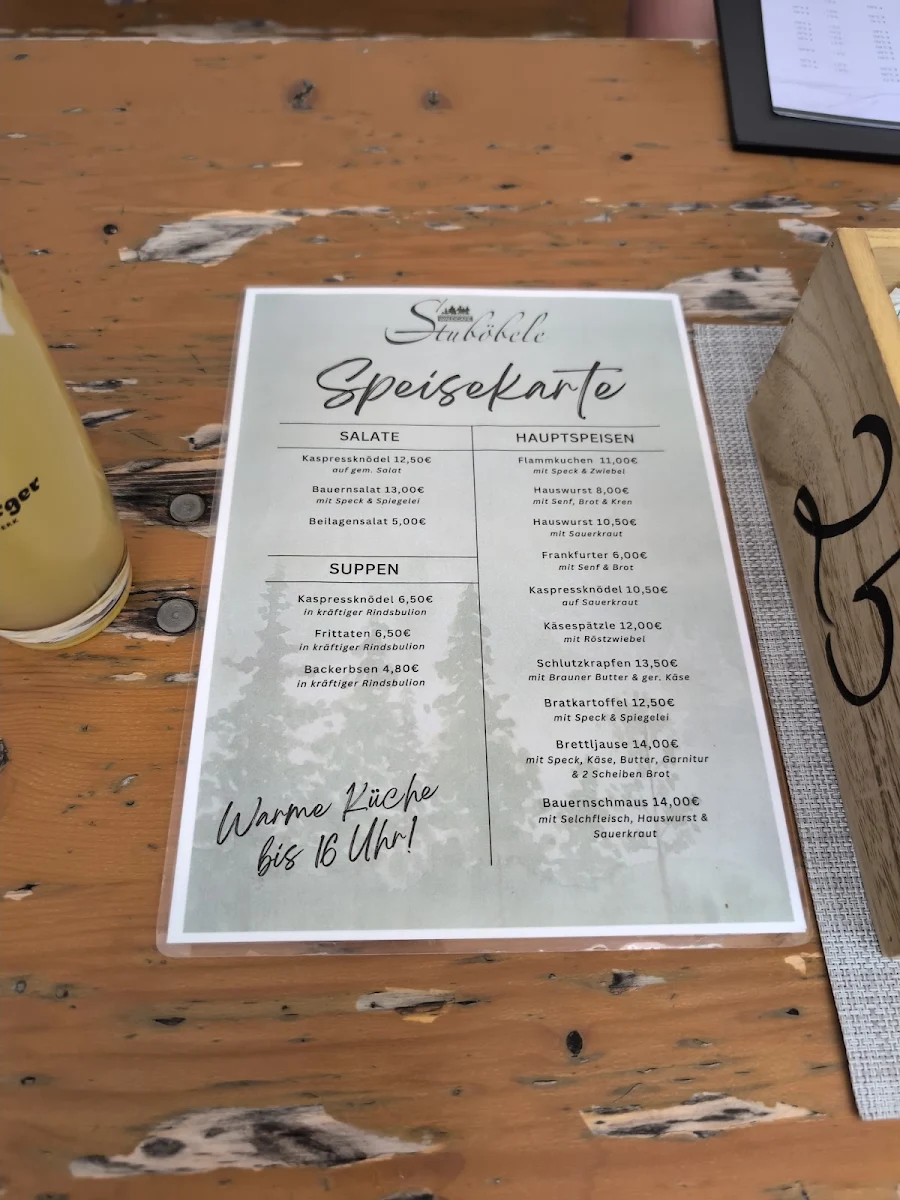 Stuböbele
Speisekarte
SALATE
Kaspressknödel 12,50€
auf gem. Salat
Bauernsalat 13,00€
mit Speck & Spiegelei
Beilagensalat 5,00€
SUPPEN
Kaspressknödel 6,50€
in kräftiger Rindsbulion
Frittaten 6,50€
in kräftiger Rindsbulion
Backerbsen 4,80€
in kräftiger Rindsbulion
Warme Küche
bis 16 Uhr!
HAUPTSPEISEN
Flammkuchen 11,00€
mit Speck & Zwiebel
Hauswurst 8,00€
mit Senf, Brot & Kren
Hauswurst 10,50€
mit Sauerkraut
Frankfurter 6,00€
mit Senf & Brot
Kaspressknödel 10,50€
auf Sauerkraut
Käsespätzle 12,00€
mit Röstzwiebel
Schlutzkrapfen 13,50€
mit Brauner Butter & ger. Käse
Bratkartoffel 12,50€
mit Speck & Spiegelei
Brettljause 14,00€
mit Speck, Käse, Butter, Garnitur
& 2 Scheiben Brot
Bauernschmaus 14,00€
mit Selchfleisch, Hauswurst &
Sauerkraut